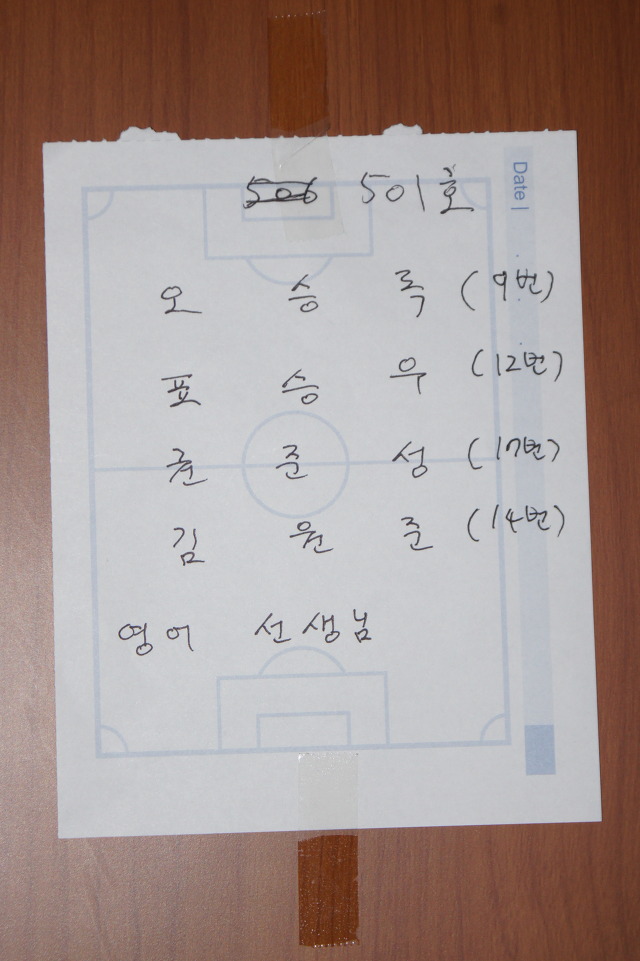 Date |
506 501호
오 승 록 (9번)
표 승 우 (12번)
권 준 성 (17번)
김 원 준 (14번)
영어 선생님